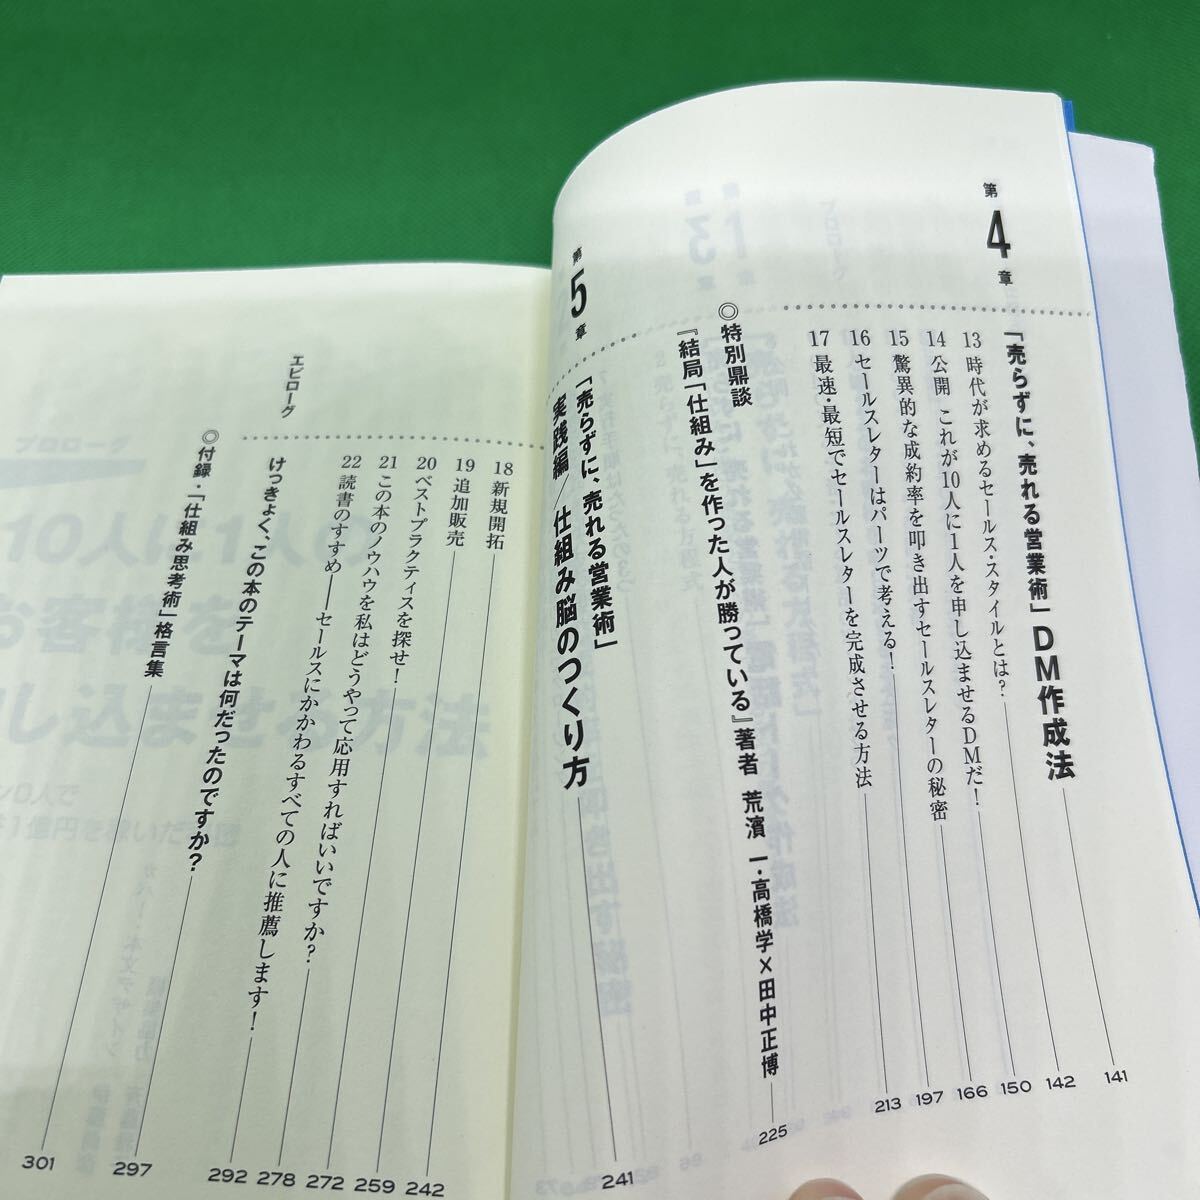 第4章
「売らずに、売れる営業術」DM作成法 141
13 時代が求めるセールス・スタイルとは? 142
14 公開 これが10人に1人を申し込ませるDMだ! 150
15 驚異的な成約率を叩き出すセールスレターの秘密 166
16 セールスレターはパーツで考える! 197
17 最速・最短でセールスレターを完成させる方法 213
◎特別鼎談
『結局「仕組み」を作った人が勝っている』著者 荒濱 一・高橋学×田中正博 225
第5章
「売らずに、売れる営業術」
実践編/仕組み脳のつくり方 241
18 新規開拓 242
19 追加販売 259
20 ベストプラクティスを探せ! 272
21 この本のノウハウを私はどうやって応用すればいいですか? 278
22 読書のすすめ——セールスにかかわるすべての人に推薦します! 292
エピローグ
けっきょく、この本のテーマは何だったのですか? 297
◎付録・「仕組み思考術」格言集 301
プロローグ
10人に1人の
お客様を
し込ませる方法